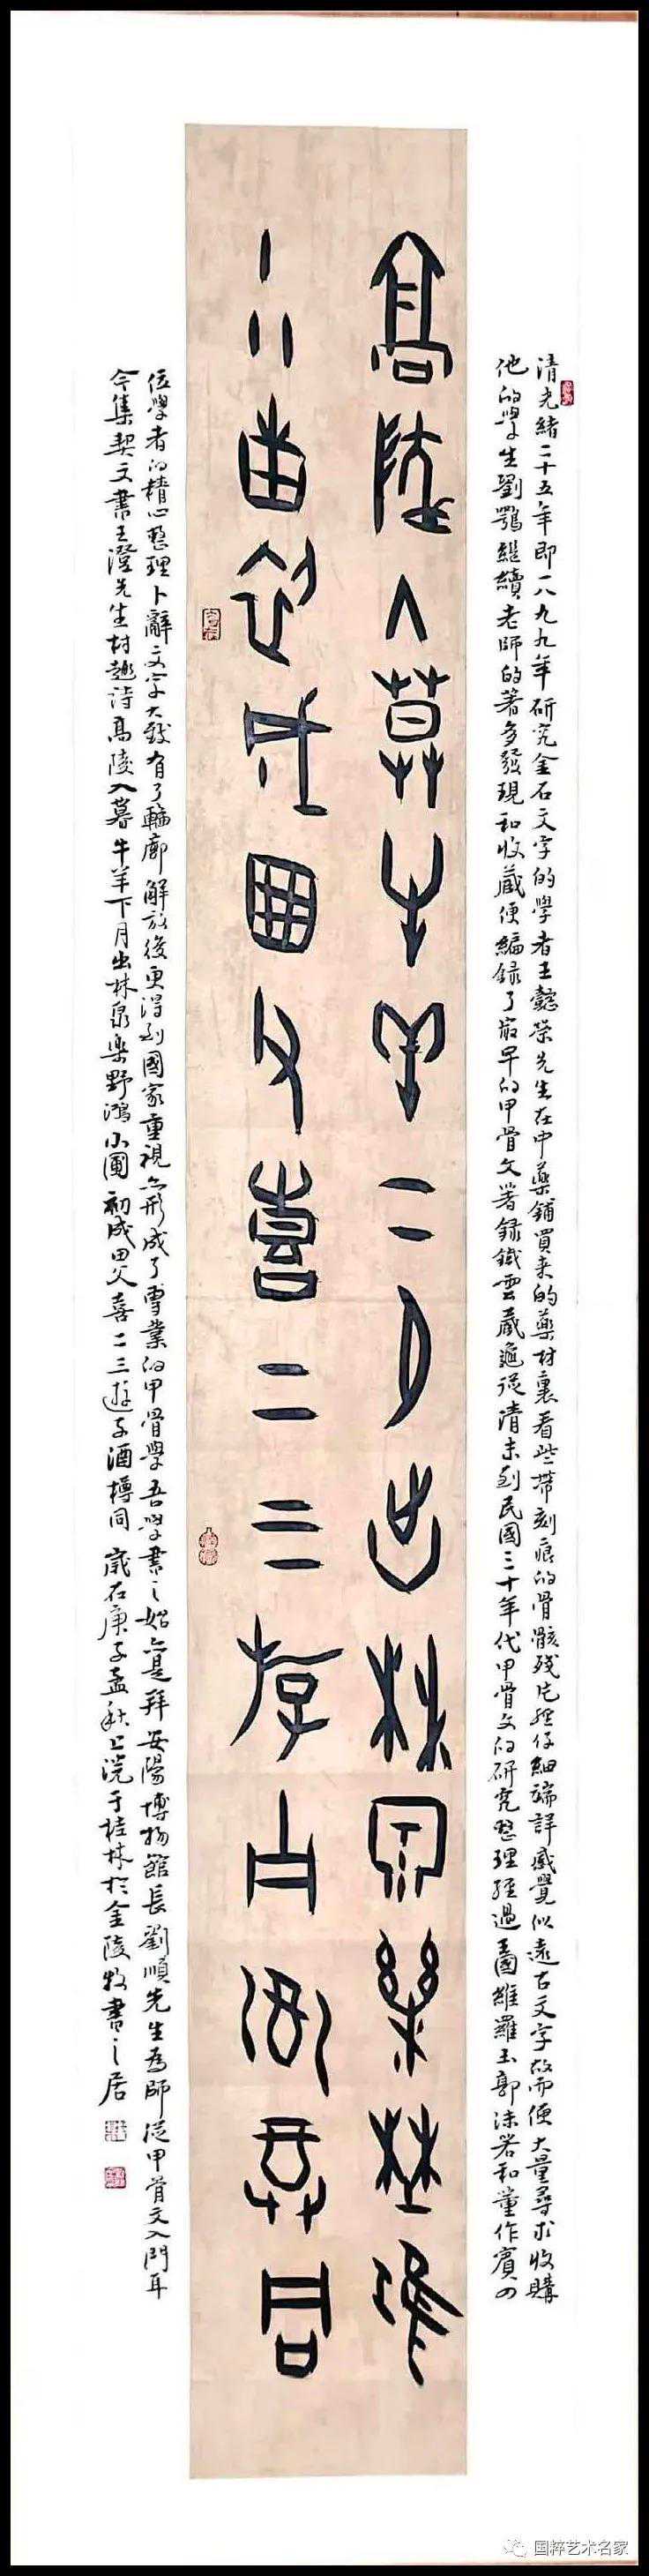 清光緒二十五年即一八九九年研究金石文字的學者王懿榮先生在中藥鋪買來的藥材裏看些帶刻痕的骨骸殘片經仔細端詳感覺似遠古文字故而便大量尋求收購
他的學生劉鶚繼續老師的著多發現和收藏便編録了最早的甲骨文著録鐵雲藏龜從清末到民國三十年代甲骨文的研究整理經過王國維羅玉郭沫若和董作賓四
高陵入暮牛羊下月出林泉樂野鴻
小圃初成田父喜二三游子酒尊同
位學者的精心整理卜辭文字大致有了輪廓解放後更得到國家重視亦形成了專業的甲骨學吾學書之始亦是拜安陽博物館長劉順先生為師從甲骨文入門耳
今集契文書王澄先生村趣詩高陵入暮牛羊下月出林泉樂野鴻小圃初成田父喜二三遊子酒樽同歲在庚子孟秋上浣于桂林於金陵牧書之居
国粹艺术名家